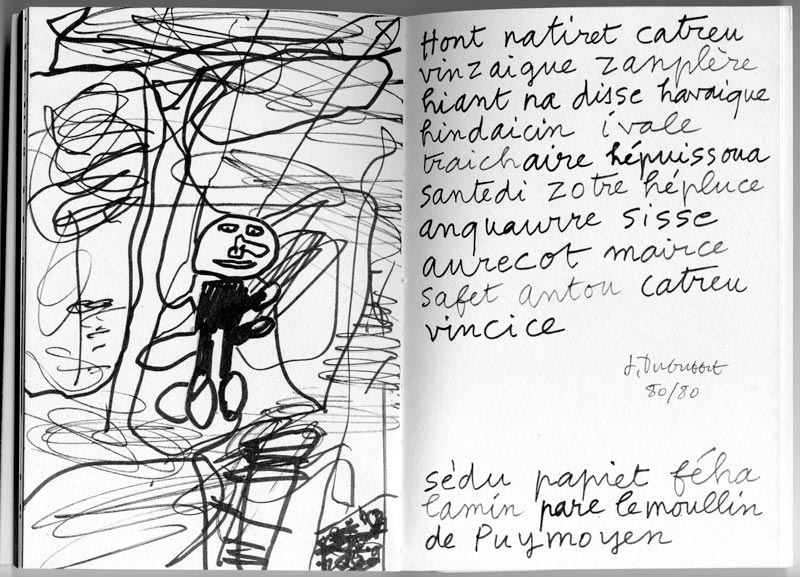 Hont natiret catreu
vinzaigue zanplère
hiant na disse havaique
hindaicin ivale
traichaire hépuissoua
santedi zotre hépluce
anquaurre sisse
aurecot mairce
safet antou catreu
vincice
J. Dubuffet
80/80
sèdu papiet féha
lamin pare lemoullin
de Puymoyen